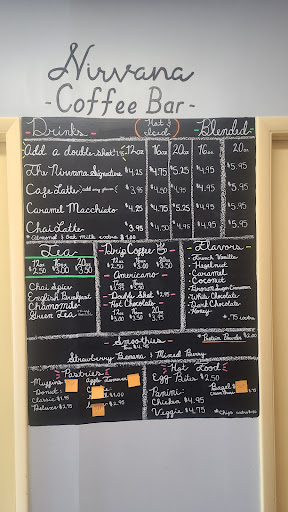 Nirvana
- Coffee Bar -
Drinks
Hot & Iced
Blended
Add a double shot! 12oz 16oz 20oz 16oz 20oz
The Nirvana Signature $4.25 $4.75 $5.25 $4.95 $5.95
Cafe Latte $3.95 $4.50 $4.95 $4.95 $5.95
Caramel Macchiato $4.25 $4.75 $5.25 $4.95 $5.95
Chai Latte $3.95 $4.50 $4.95 $4.95 $5.95
* Almond & Oat milk extra $1.00
Tea
12oz 16oz 20oz
$2.50 $3.00 $3.50
Chai Spice
English Breakfast
Chamomile
Green Tea
Drip Coffee
12oz 16oz 20oz
$2.50 $3.00 $3.50
- Americano -
12oz 16oz 20oz
$3.00
- Double Shot $2.95
- Hot Chocolate
12oz 16oz 20oz
Flavors
- French Vanilla
- Hazelnut
- Caramel
- Coconut
- Brown Sugar Cinnamon
- White Chocolate
- Dark Chocolate
- Honey
* .75 extra
- Smoothies -
* Protein Powder $2.00
Strawberry Banana & Mixed Berry
Pastries
Muffins
Apple Turnover
Donut
Classic
Deluxe $2.75
$1.00
Hot Food
Egg Bites $2.50
Panini
Bagel
Chicken $4.95
Veggie $4.75
* Chips extra